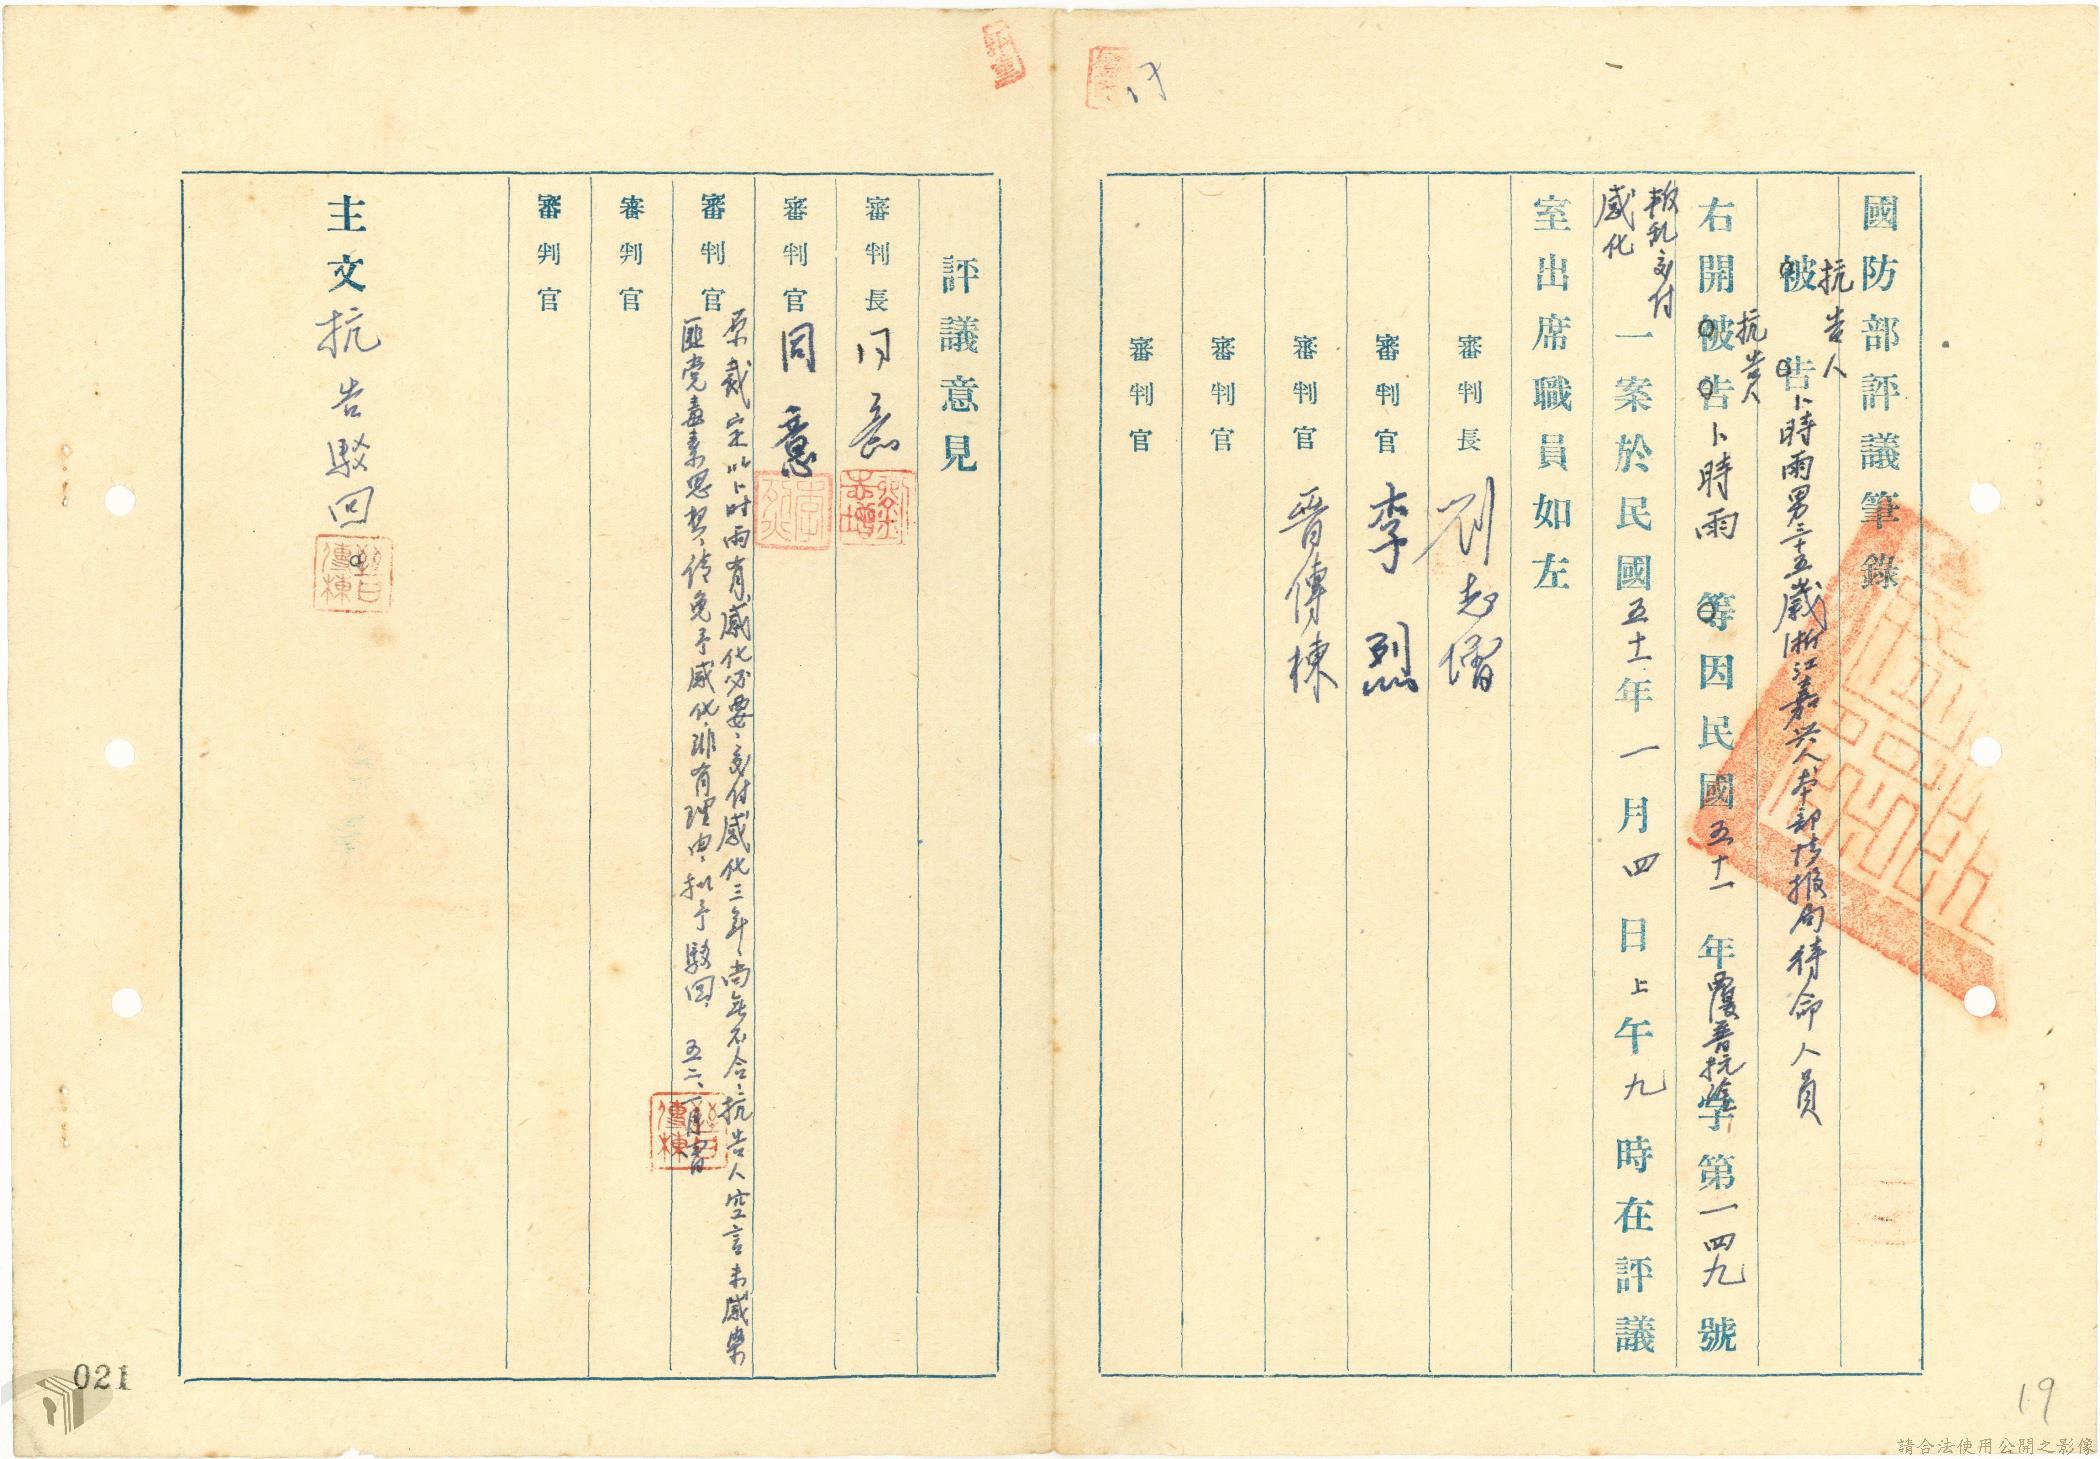 國防部評議筆錄
抗告人
被告卜時雨男三十五歲浙江嘉兴人本部情报局待命人員
抗告人
右開被告卜時雨等因民國五十一年覆普抗字第一四九號
叛乱交付
感化
一案於民國五十二年一月四日上午九時在評議
室出席職員如左
審判長 刘志增
審判官 李烈
審判官 晉傳棟
審判官
審判官
評議意見
審判長 同意
審判官 同意
審判官 原裁定以卜时雨有感化必要、交付感化三年、尚無不合、抗告人空言未感染
匪党毒素思想、請免予感化、非有理由、拟予駁回、五二、一月
審判官
審判官
主文 抗告駁回
李烈
晉傳棟
晉傳棟
021
19
請合法使用公開之影像